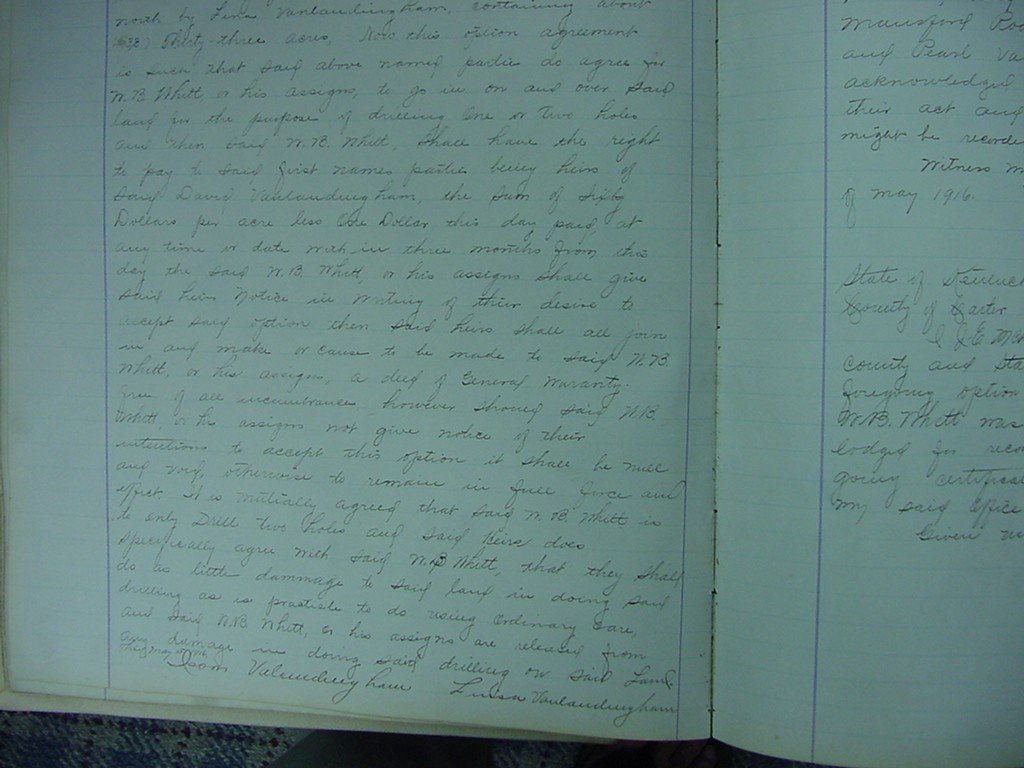 north by Lina Vanlandingham, containing about
(33) Thirty-three acres, Now this option agreement
is such that said above named parties do agree for
W.B. Whitt, or his assigns, to go in on and over said
land for the purpose of drilling One or Two holes
and then said W.B. Whitt, shall have the right
to pay to said first names parties being heirs of
said David Vanlandingham, the sum of Sixty
Dollars per acre less One Dollar this day paid, at
any time or date with in three months from this
day the said W.B. Whitt, or his assigns shall give
said heirs notice in writing of their desire to
accept said option then said heirs shall all join
in and make or cause to be made to said W.B.
Whitt, or his assigns, a deed of General Waranty.
free of all incumbrances however should said W.B.
Whitt, or his assigns not give notice of their
intentions to accept this option it shall be null
and void, otherwise to remain in full force and
effect. It is mutually agreed that said W.B. Whitt is
to only Drill two holes and said heirs does
specifically agree with said W.B. Whitt, that they shall
do as little dammage to said land in doing said
drilling as is practicle to do using Ordinary Care,
and said W.B. Whitt, or his assigns are released from
any damage in doing said drilling on said Land.
Isom Valundingham Luisa Vanlandingham
and Pearl Va
acknowledged
their act and
might be recorde
Witness m
of May 1916.
State of Kentuck
County of Carter
I J.E. M
County and Sta
foregoing option
W.B. Whitt was
lodged for reco
going certificat
my said office
Given un